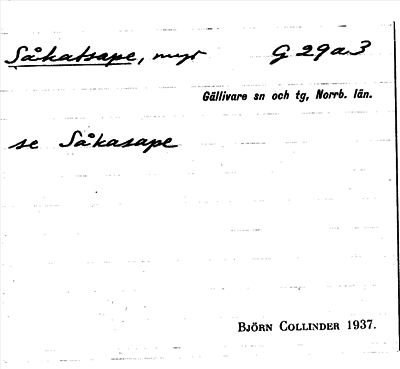 Såkatsape, myr G 29a3
Gällivare sn och tg, Norrb. län.
se Såkasape
BJÖRN COLLINDER 1937.